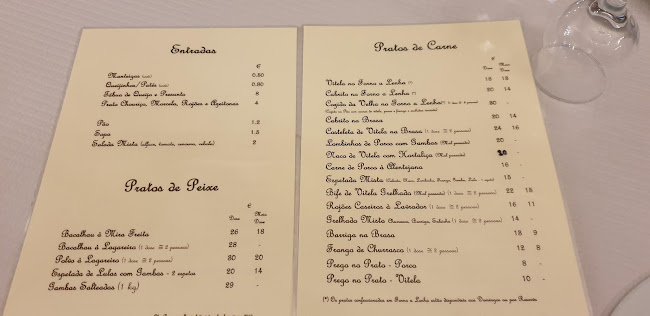 Entradas
€
Manteigas 0.50
Queijinhos/Patés 0.80
Tábua de Queijo e Presunto 8
Prato Chouriça, Morcela, Rojões e Azeitonas 4
Pão 1.2
Sopa 1.5
Salada Mista (alface, tomate, cenoura, cebola) 2
Pratos de Peixe
€
Dose Meia Dose
Bacalhau à Miro Freita 26 18
Bacalhau à Lagareiro (1 dose = 2 pessoas) 28 -
Polvo à Lagareiro (1 dose = 2 pessoas) 30 20
Espetada de Lulas com Gambas - 2 espetos 20 14
Gambas Salteadas (1 kg) 29 -
Pratos de Carne
€
Dose Meia Dose
Vitela no Forno a Lenha (*) 18 13
Cabrito no Forno a Lenha (*) 20 14
da Velha no Forno a Lenha(*) (1 dose = 2 pessoas) 30 -
Cabrito na Brasa 20 14
Costeleta de Vitela na Brasa (1 dose = 2 pessoas) 24 16
Lombinhos de Porco com Gambas (Mal passado) 20 -
Naco de Vitela com Hortaliça (Mal passado) 20 -
Carne de Porco à Alentejana 16 -
Espetada Mista 18 13
Bife de Vitela Grelhada (Mal passado) (1 dose = 2 pessoas) 22 15
Rojões Caseiros à Lavrador (1 dose = 2 pessoas) 18 11
Grelhada Mista (1 dose = 2 pessoas) 14 -
Barriga na Brasa 13 9
Frango de Churrasco (1 dose = 2 pessoas) 12 8
Prego no Prato - Porco 8 -
Prego no Prato - Vitela 10 -
(*) Os pratos confeccionados em Forno a Lenha estão disponíveis aos Domingos ou por Reserva